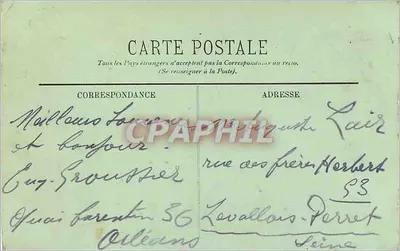 CARTE POSTALE
Tous les Pays étrangers n'acceptent pas la Correspondance au recto.
(Se renseigner à la Poste).
CORRESPONDANCE
ADRESSE
CPAPHIL
Meilleurs
et bonjour.
Eug. Groussier
Quai 36
Orléans
Auguste Lair
rue des frères Herbert
93
Levallois-Perret
Seine